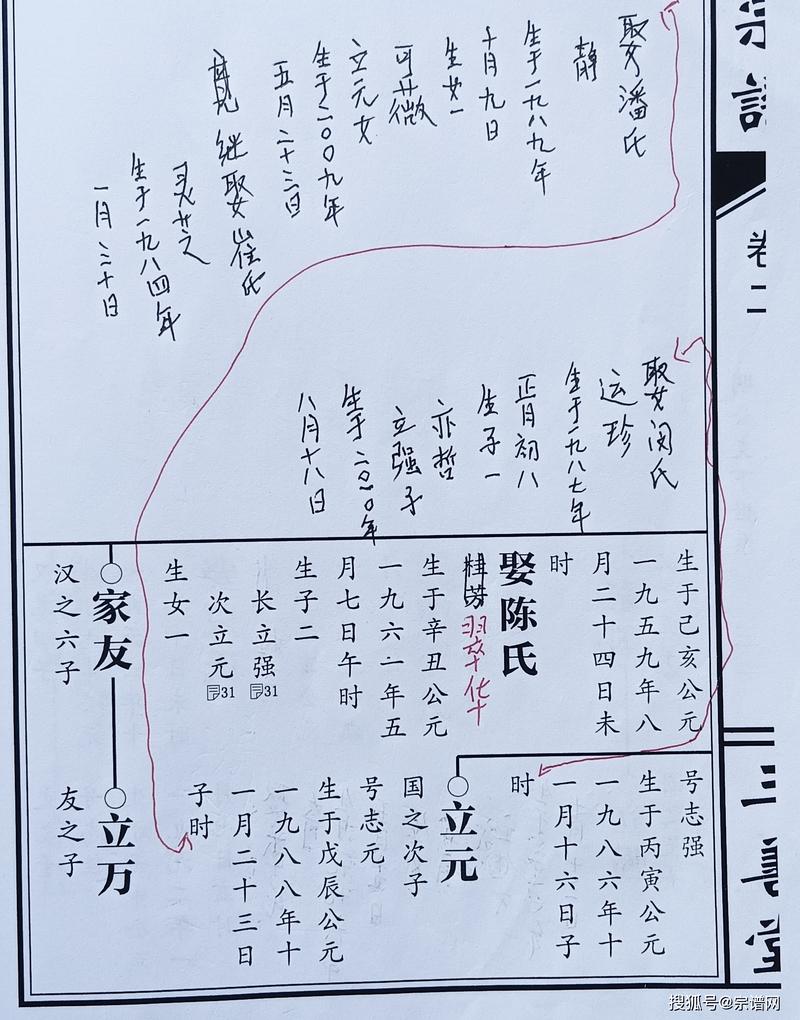 宗谱
卷二
三善堂
娶潘氏
静
生于一九八九年
十月九日
生女一
可薇
立元女
生于二〇〇九年
五月二十三日
继娶崔氏
灵芝
生于一九八四年
一月二十日
娶闵氏
运珍
生于一九八七年
正月初八
生子一
亦哲
立强子
生于二〇一〇年
八月十八日
生于己亥公元
一九五九年八
月二十四日未
时
娶陈氏
桂芳
翠华
生于辛丑公元
一九六一年五
月七日午时
生子二
长立强31
次立元31
生女一
家友
汉之六子
号志强
生于丙寅公元
一九八六年十
一月十六日子
时
立元
国之次子
号志元
生于戊辰公元
一九八八年十
一月二十三日
子时
立万
友之子
搜狐号@宗谱网